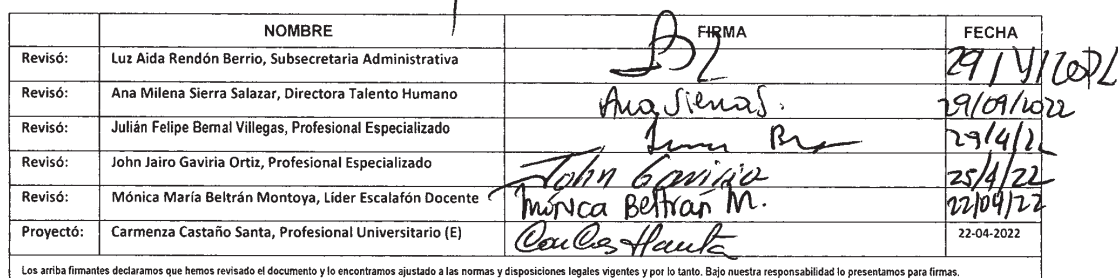 NOMBRE FIRMA FECHA
Revisó: Luz Aida Rendón Berrio, Subsecretaria Administrativa
Revisó: Ana Milena Sierra Salazar, Directora Talento Humano Ana Sierra S. 29/09/2022
Revisó: Julián Felipe Bernal Villegas, Profesional Especializado 29/4/22
Revisó: John Jairo Gaviria Ortiz, Profesional Especializado John Gaviria 25/4/22
Revisó: Mónica María Beltrán Montoya, Líder Escalafón Docente Mónica Beltrán M. 22/04/22
Proyectó: Carmenza Castaño Santa, Profesional Universitario (E) 22-04-2022
Los arriba firmantes declaramos que hemos revisado el documento y lo encontramos ajustado a las normas y disposiciones legales vigentes y por lo tanto. Bajo nuestra responsabilidad lo presentamos para firmas.